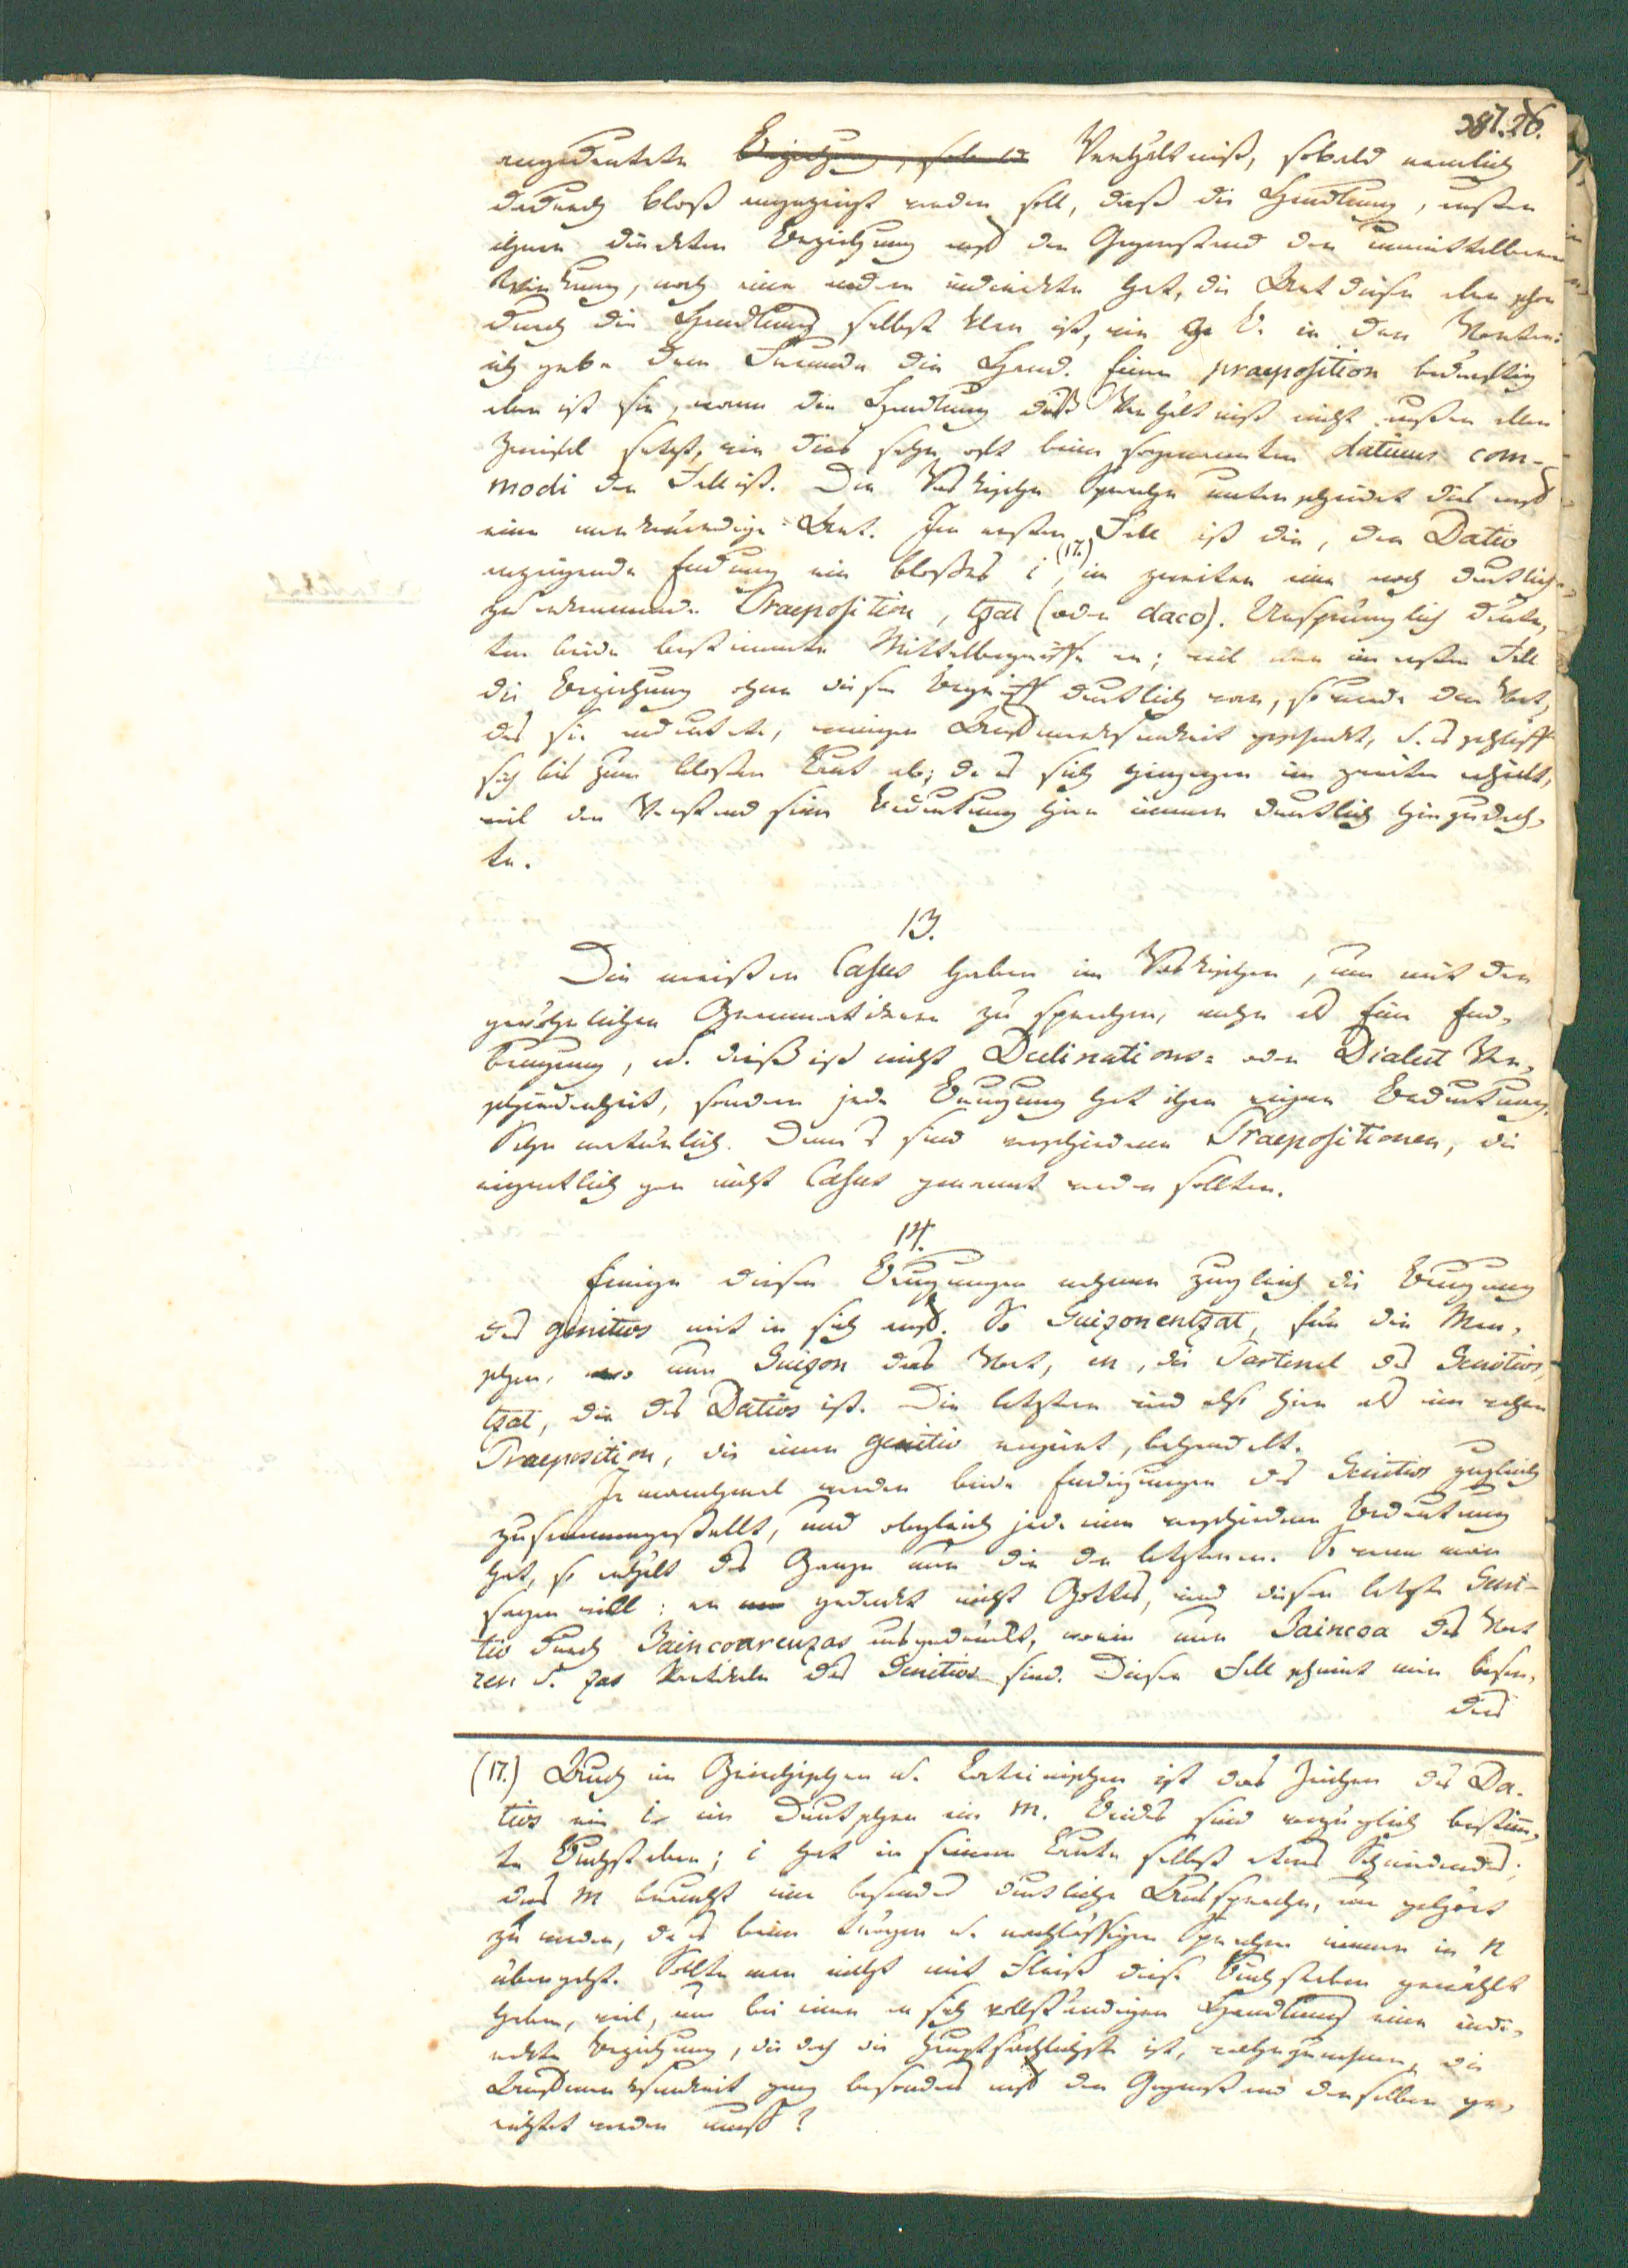 387.26.
angedeutete Beziehung, sobald Verhältniß, sobald nemlich
dadurch bloß angezeigt werden soll, daß die Handlung, außer
ihrer direkten Beziehung auf den Gegenstand der unmittelbaren
Wirkung, noch eine andere indirekte hat, die Art dieser aber schon
durch die Handlung selbst klar ist, wie z. B. in den Worten:
ich gebe dem Freunde die Hand. Einer praeposition bedürftig
aber ist sie, wenn die Handlung dieß Verhältniß nicht außer allen
Zweifel setzt, wie dies sehr oft beim sogenannten dativus com-
modi der Fall ist. Die Vaskische Sprache unterscheidet dies auf
eine merkwürdige Art. Im ersten Fall ist die, den Dativ
anzeigende Endung ein bloßes i (17.), im zweiten eine noch deutlich
zu erkennende Praeposition, tzat (oder daco). Ursprünglich deute-
ten beide bestimmte Mittelbegriffe an; weil aber im ersten Fall
die Beziehung ohne diesen Begriff deutlich war, so wurde dem Wort,
das sie andeutete, weniger Aufmerksamkeit geschenkt, u. es schliff
sich bis zum bloßen Laut ab; da es sich hingegen im zweiten erhielt,
weil der Verstand seine Bedeutung hier immer deutlich hinzudach-
te.
13.
Die meisten Casus haben im Vaskischen, um mit den
gewöhnlichen Grammatikern zu sprechen, mehr als Eine End-
beugung, u. dieß ist nicht Declinations- oder Dialect Ver-
schiedenheit, sondern jede Beugung hat ihre eigne Bedeutung.
Sehr natürlich. Denn es sind verschiedene Praepositionen, die
eigentlich gar nicht Casus genannt werden sollten.
14.
Einige dieser Beugungen nehmen zugleich die Beugung
des genitivs mit in sich auf. So Guizonentzat, für die Men-
schen, wo nun Guizon das Wort, en, die Partikel des Genitivs,
tzat, die des Dativs ist. Die letztere wird also hier als eine wahre
Praeposition, die einen genitiv regiert, behandelt.
Ja manchmal werden beide Endigungen des Genitivs zugleich
zusammengestellt, und obgleich jede eine verschiedene Bedeutung
hat, so erhält das Ganze nur die der letzteren. So wenn man
sagen will: er gedenkt nicht Gottes, wird dieser letzte Geni-
tiv durch Jaincoarenzas ausgedrückt, worin nun Jaincoa das Wort
ren u. zas Partikeln des Genitivs sind. Dieser Fall scheint mir beson-
ders
(17.) Auch im Griechischen u. Lateinischen ist das Zeichen des Da-
tivs ein i im Deutschen ein m. Beides sind vorzüglich bestimm-
te Buchstaben; i hat in seinem Laute selbst etwas Schneidendes;
das m braucht eine besonders deutliche Aussprache, um gehört
zu werden, da es beim trägen u. nachlässigen Sprechen immer in n
übergeht. Sollte man nicht mit Fleiß diese Buchstaben gewählt
haben, weil, um bei einer an sich vollständigen Handlung eine indi-
rekte Beziehung, die doch die hauptsächlichste ist, wahrzunehmen, die
Aufmerksamkeit ganz besonders auf den Gegenstand derselben ge-
richtet werden muß?